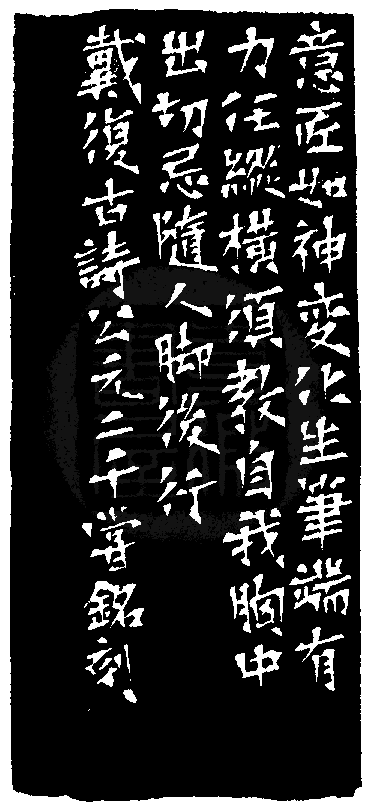 意匠如神変化生筆端有
力任縱橫須教自我胸中
出切忌隨人脚後行
戴復古詩公元二千嘗銘刻